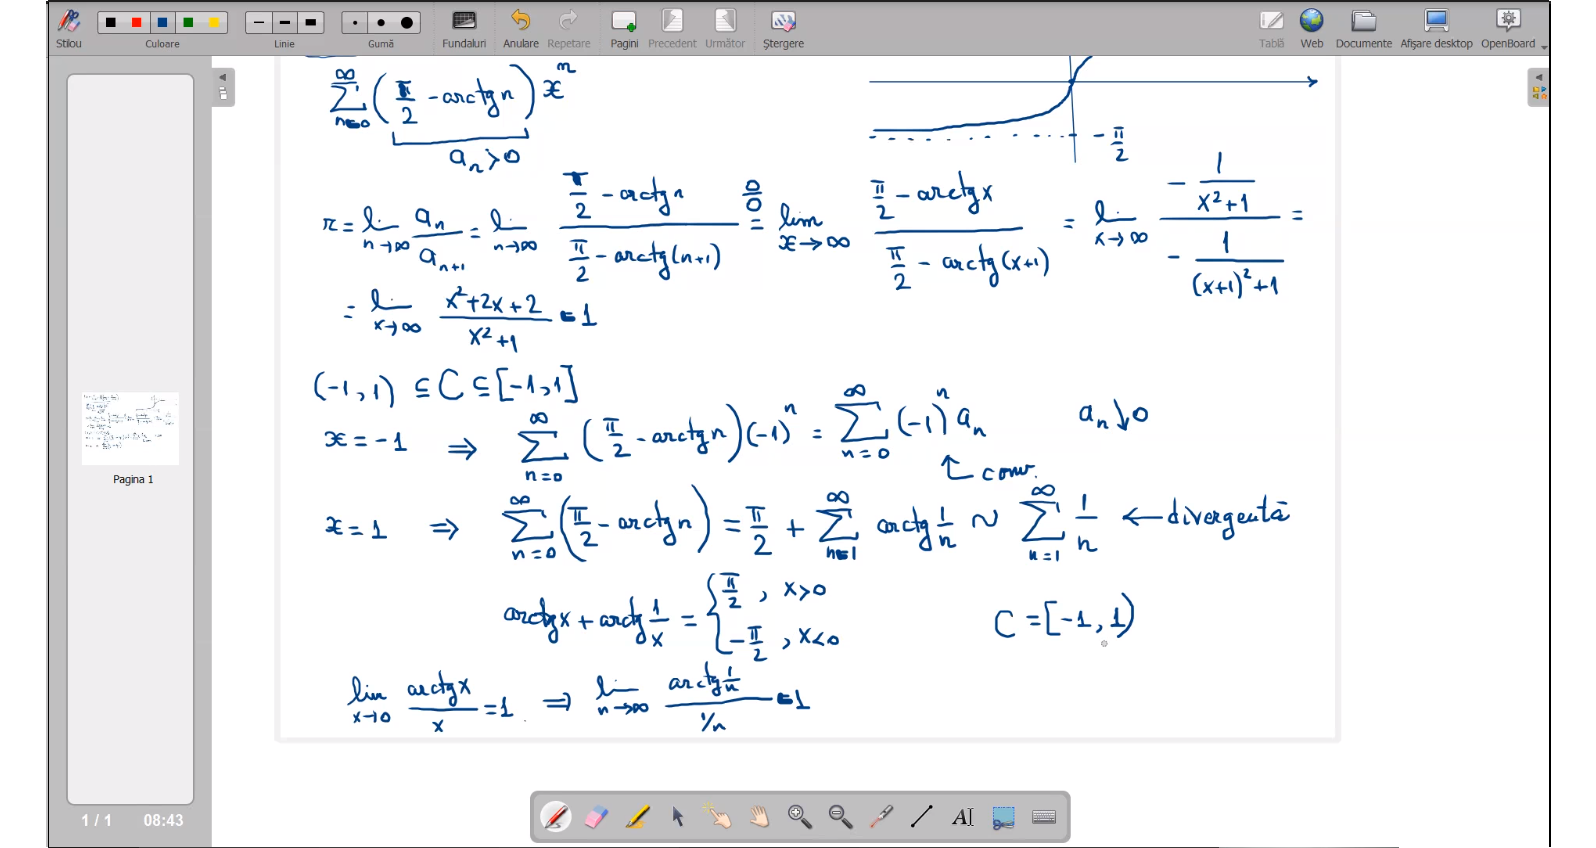 Stilou Culoare Linie Gumă Fundaluri Anulare Repetare Pagini Precedent Următor Ștergere Tablă Web Documente Afișare desktop OpenBoard
∞∑n=0 (π/2 - arctg n) xⁿ
aₙ>0
-π/2
r = lim n→∞ aₙ/aₙ₊₁ = lim n→∞ (π/2 - arctg n)/(π/2 - arctg(n+1)) =(0/0) lim x→∞ (π/2 - arctg x)/(π/2 - arctg(x+1)) = lim x→∞ (-1/(x²+1))/(-1/((x+1)²+1)) =
= lim x→∞ (x²+2x+2)/(x²+1) = 1
(-1,1) ⊆ C ⊆ [-1,1]
x = -1 ⇒ ∞∑n=0 (π/2 - arctg n)(-1)ⁿ = ∞∑n=0 (-1)ⁿ aₙ aₙ↓0
↑ conv.
x = 1 ⇒ ∞∑n=0 (π/2 - arctg n) = π/2 + ∞∑n=1 arctg 1/n ~ ∞∑n=1 1/n ← divergentă
arctg x + arctg 1/x = { π/2, x>0
-π/2, x<0
C = [-1, 1)
lim x→0 arctg x/x = 1 ⇒ lim n→∞ (arctg 1/n)/(1/n) = 1
Pagina 1
1 / 1 08:43